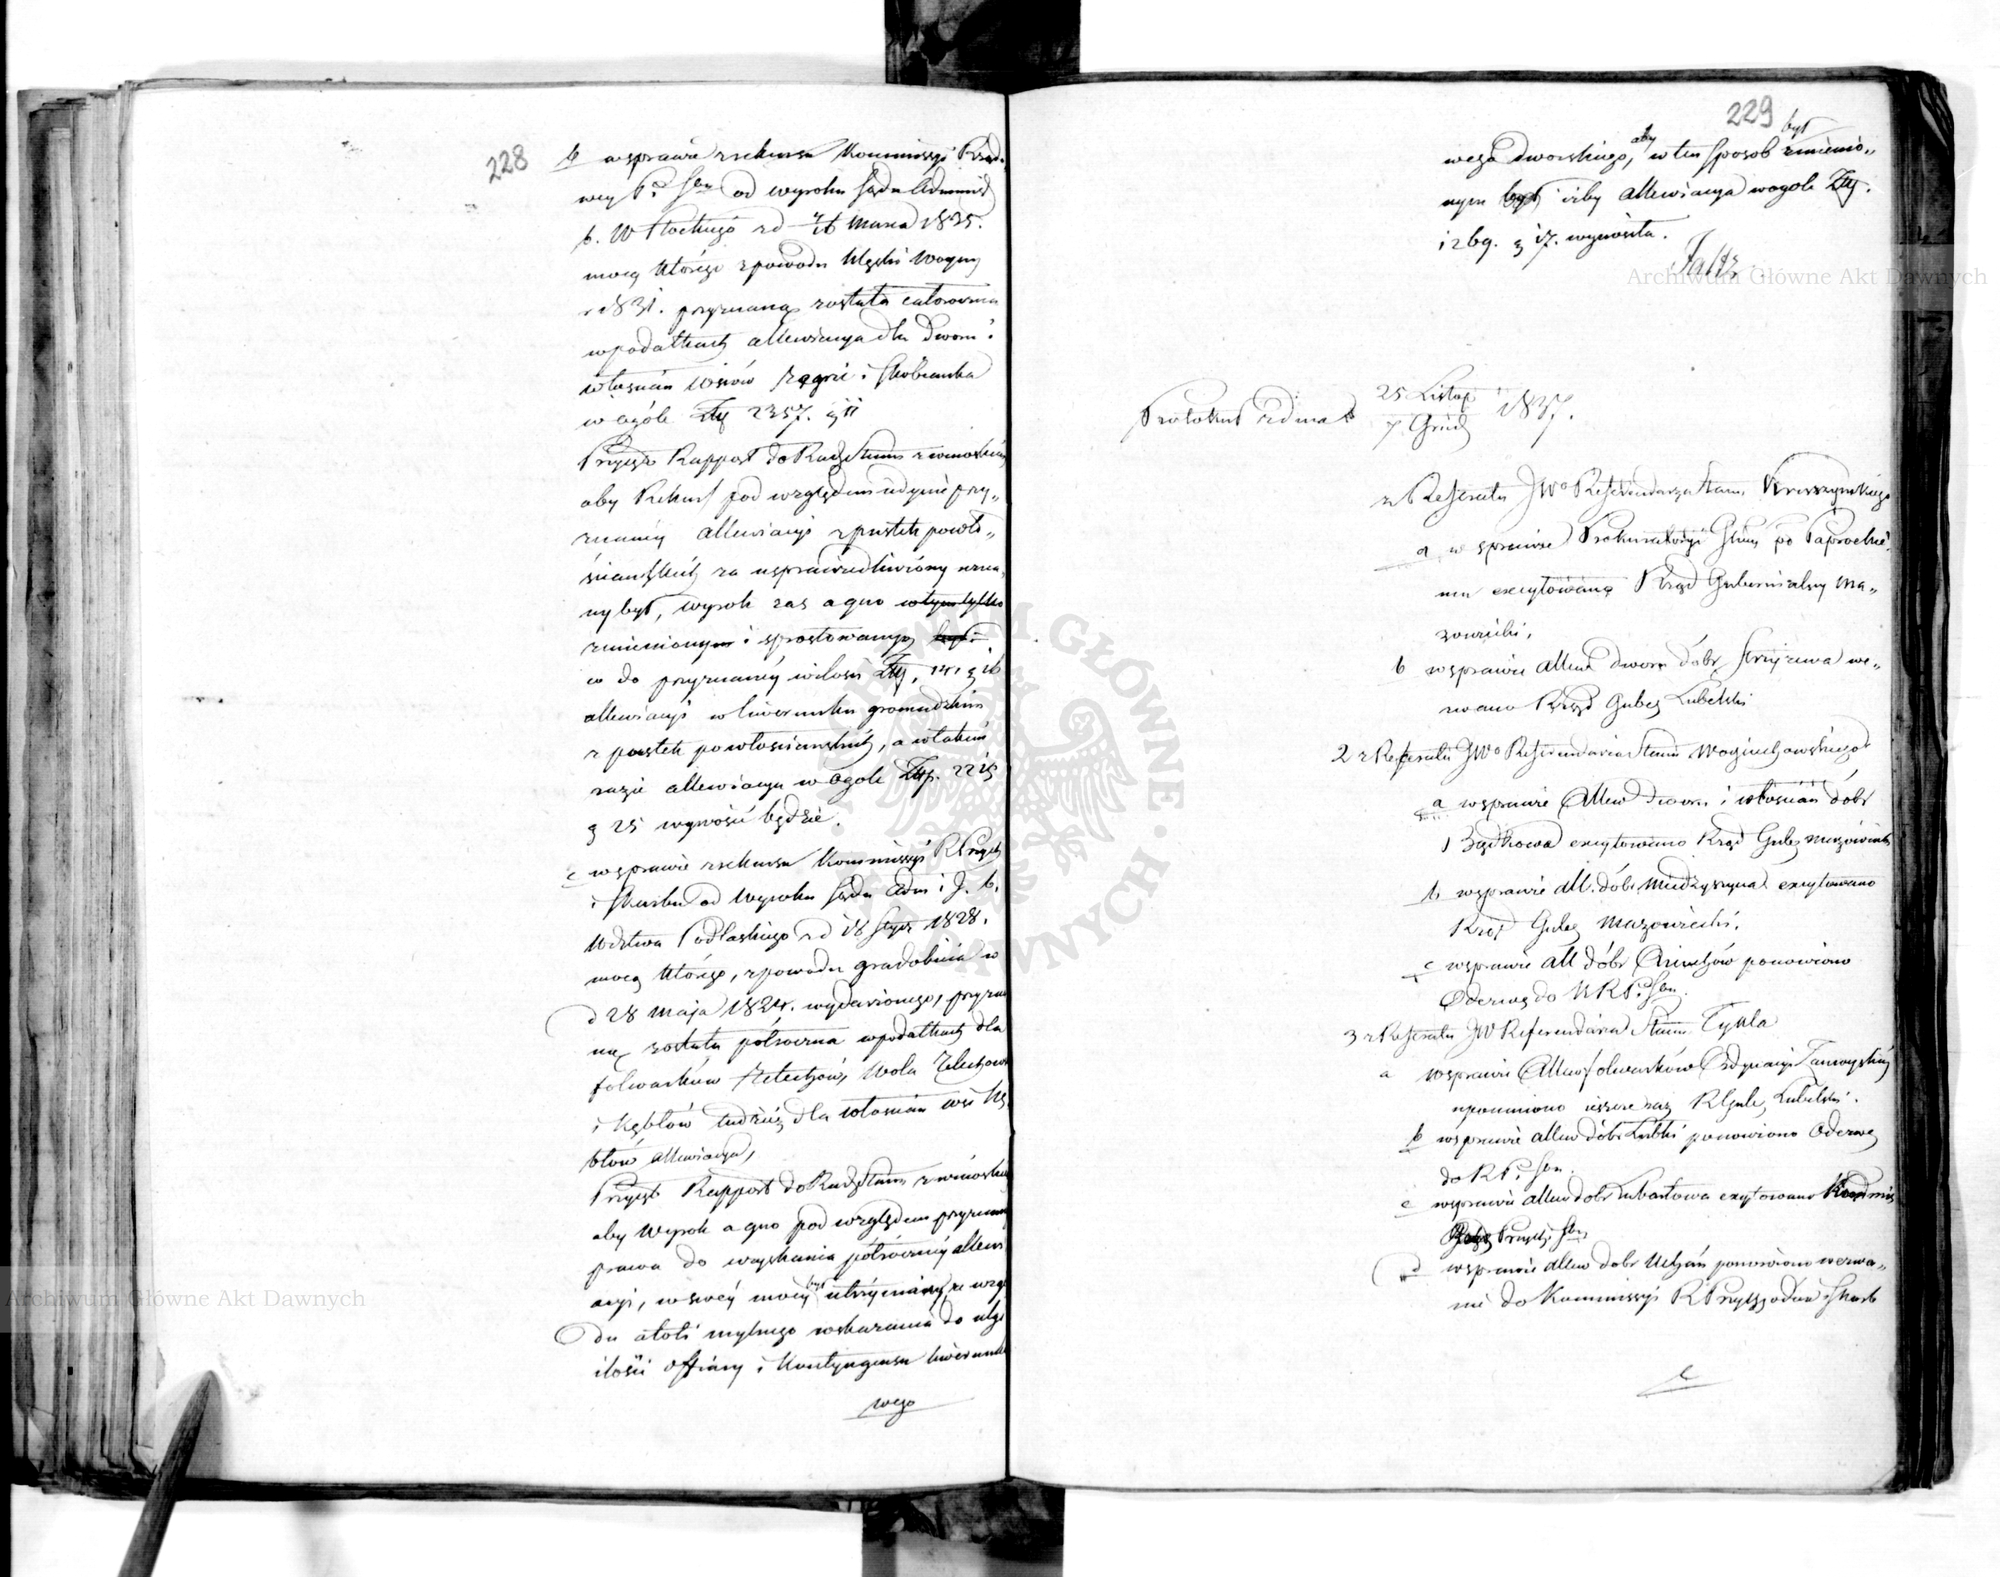 228
b w sprawie rekursu Kommissyi Rządo
wey P. i Sbu od wyroku Sądu Administ
b. W Płockiego z d 4/16 Marca 1835.
mocą którego z powodu klęski woyny
r 1831. przyznaną została całoroczna
w podatkach allewiacya dla Dworu i
włościan wsiów i Skobiecka
w ogóle Złp 2357. g 11
Przyjęto Rapport do Rady Stanu z wnioskiem
aby Rekurs pod względem jedynie przy„
znaney allewiacyi z pustek powło„
ściańskich za usprawiedliwiony uzna„
ny był, wyrok zaś a quo w tym tylko
zmienionym i sprostowanym był
co do przyznaney w ilości Złp. 141 g 16
allewiacyi w liwerunku gromadzkim
z pustek powłościańskich, a w takim
razie allewiacya w ogóle Złp. 2215
g 25 wynosić będzie.
c w sprawie rekursu Kommissyi R Przych
i Skarbu od Wyroku Sądu Adm i J. b.
Wdztwa Podlaskiego z d 18 Stycz 1828.
mocą którego, z powodu gradobicia w
d 28 Maja 1824. wydarzonego, przyzna
ną została półroczna w podatkach dla
folwarków Żelechów, Wola Żelechows
i Kębłów tudzież dla włościan wsi Kę
błów allewiacya,
Przyjęto Rapport do Rady Stanu z wnioskiem
aby Wyrok a quo pod względem przyznaney
prawa do uzyskania półroczney allewi
acyi, w swey mocy był utrzymany, ze wzglę
du atoli mylnego wskazania do ulgi
ilości Offiary i Kontyngensu liwerunko
wego
229
wego dworskiego, aby w ten sposób był zmienio„
nym był iżby allewiacya w ogóle Złp.
1269. g 17. wynosiła.
Protokuł z dnia 25 Listop / 7 Grud 1837.
z Referatu JWo Referendarza Stanu Kruszyńskiego
a w sprawie Prokuratoryi Głney po Paprockie„
mu excytowano Rząd Gubernialny Ma„
zowiecki,
b w sprawie allew dworu dóbr Strzyżewa we„
zwano Rząd Guber Lubelski
2 z Referatu JWo Referendarza Stanu Woyciechowskiego
a w sprawie Allew dworu i włościan dóbr
Bądkowa excytowano Rząd Guber Mazowiecki
b w sprawie all. dóbr Międzyrzyna excytowano
Rząd Guber Mazowiecki.
c w sprawie all dóbr ponowiono
Odezwę do K R P. i Sbu.
3 z Referatu JW Referendarza Stanu Tykla
a w sprawie Allew folwarków Ordynacyi Zamoyskiey
upomniono ieszcze raz R Gube Lubelski.
b w sprawie allew dóbr Lubki ponowiono Odezwę
do K R P. i Sbu.
c w sprawie allew dóbr Lubartowa excytowano Kommis
Rząd Przych i Sbu
d w sprawie allew dóbr Uchań ponowiono wezwa„
nie do Kommissyi R Przychodów i Skarb